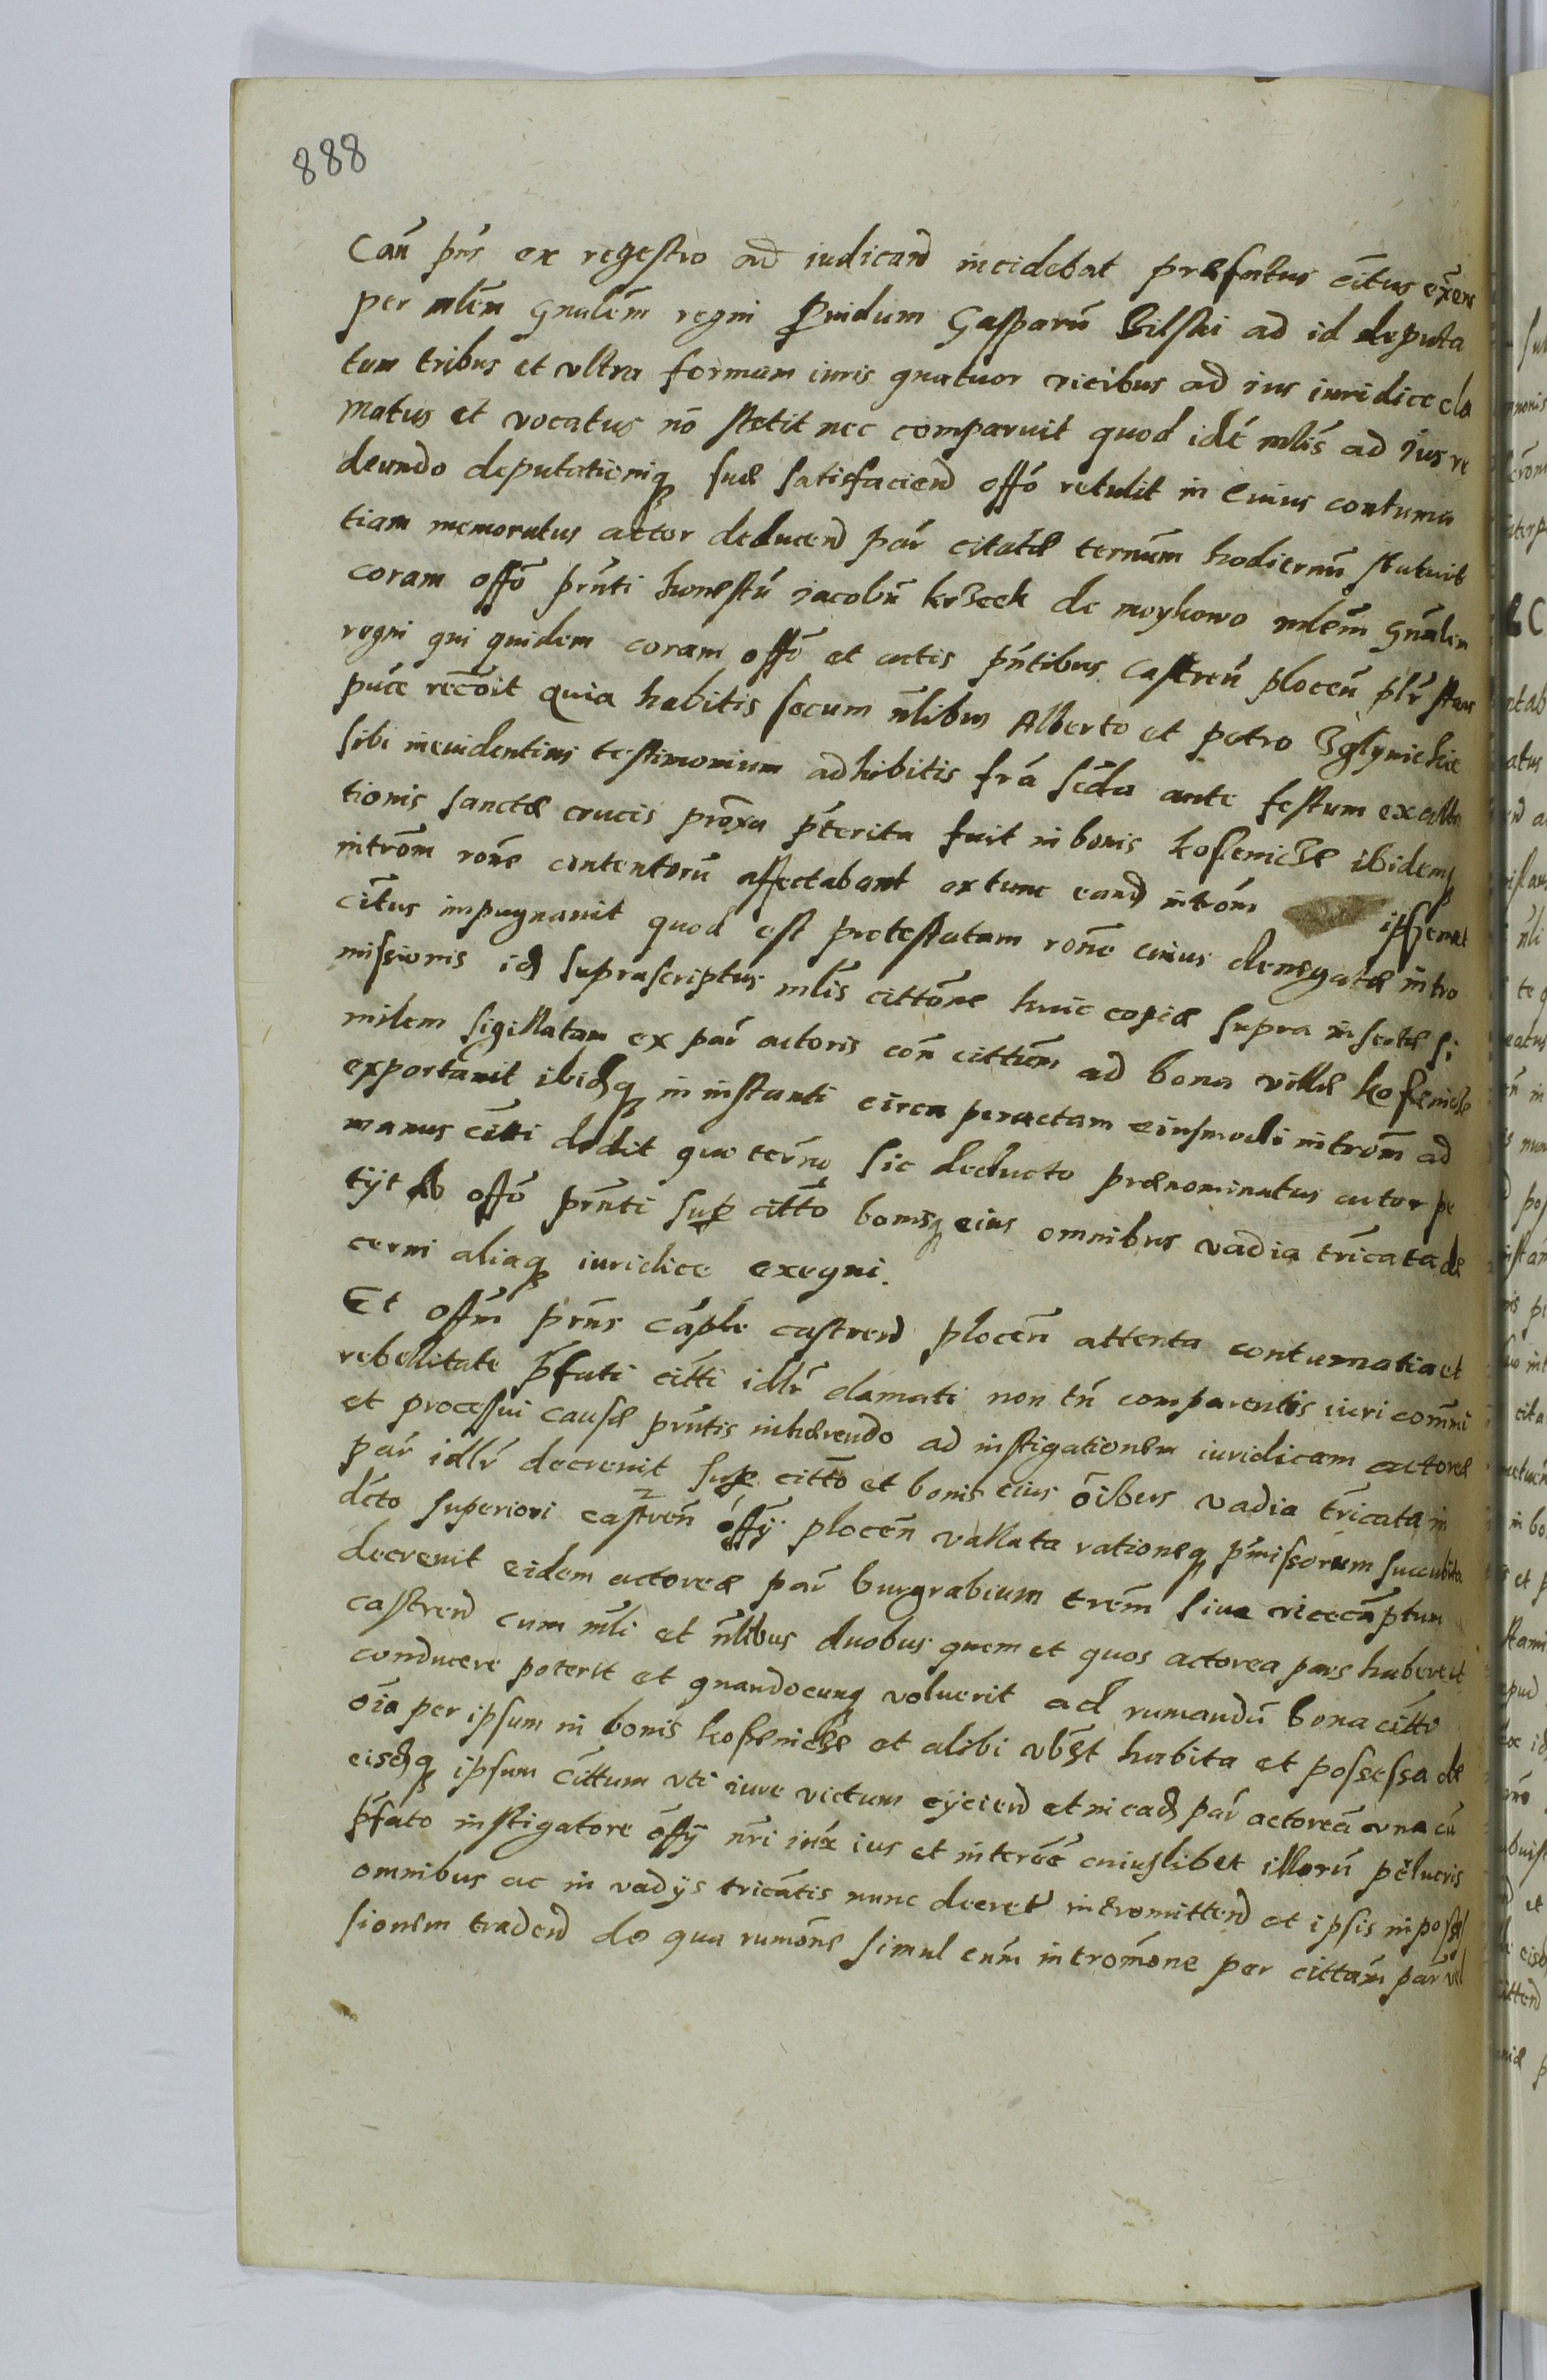 888
Cau᷃ pn̄s ex regestro ad iudicand incidebat præfatus cītus exn̄s
per mlēm Gnalēm regni Prouidum Gasparū Bilski ad id deputa
tum tribus et vltra formam iuris quatuor vicibus ad ius iuridice cla
matus et vocatus nō stetit nec comparuit quod idē mlīs ad ius re
deundo deputationiq suæ satisfaciend offō retulit in cuius contuma
tiam memoratus actor deducend par citatæ termūm hodiernū statuit
coram offō prn̄ti honestū Jacobū krzeek de moykowo mlēm Gnālem
regni qui quidem coram offō et actis pn̄tibus castren̄ plocen̄ plr̄ stans
puce recōit quia habitis secum nl̄ibus Alberto et petro Zglyniczkie
sibi ineuidentius testimonium adhibitis frā scda ante festum exalta
tionis sanctæ crucis proxa pterita fuit in bonis koseniczæ ibidemq
introm̄ rone contentorū affectabant extunc eand introm̄ ipsemet
cītus impugnauit quod est protestatum rone cuius denegatæ intro
missionis id suprascriptus mlīs cittōne huic copiæ supra insertæ si
milem sigillatam ex par actoris con̄ cittum ad bona villæ koseniczæ
exportauit ibidq in instanti circa peractam eiusmodi introm̄ ad
manus cītti dedit quo termno sic deducto prænominatus actor pe
tijt ab offō prn̄ti sup cittō bonisq eius omnibus vadia tricata de
cerni aliaq iuridice exequi.
Et offm̄ prn̄s cāple castrend plocen̄ attenta contumatia et
rebellitate pfati cītti idlr̄ clamati non tn̄ comparentis iuri comni
et processui causæ prn̄tis inhærendo ad instigationem iuridicam actoreæ
par idlr̄ decreuit sup cittō et bonis eius oibus vadia tricata in
dcto superiori castren̄ offy plocen̄ vallata rationeq pmissorum succubita
decreuit eidem actoreæ par burgrabium trem̄ siue vicecaptum
castrend cum mli et nl̄ibus duobus quem et quos actorea pars habere et
conducere poterit et quandocunq voluerit ad rumandū bona cītti
oia per ipsum in bonis koseniczæ et alibi vblt habita et possessa de
eisdq ipsum cittum vti iure victum eyciend et in ead par actoreā vna cū
pfato instigatore offy nri iux ius et interee cuiuslibet illorū pelucris
omnibus ac in vadys tricatis nunc decret intromittend et ipsis in posses
sionem tradend de qua rumōne simul cum intromōne per cittam par vel